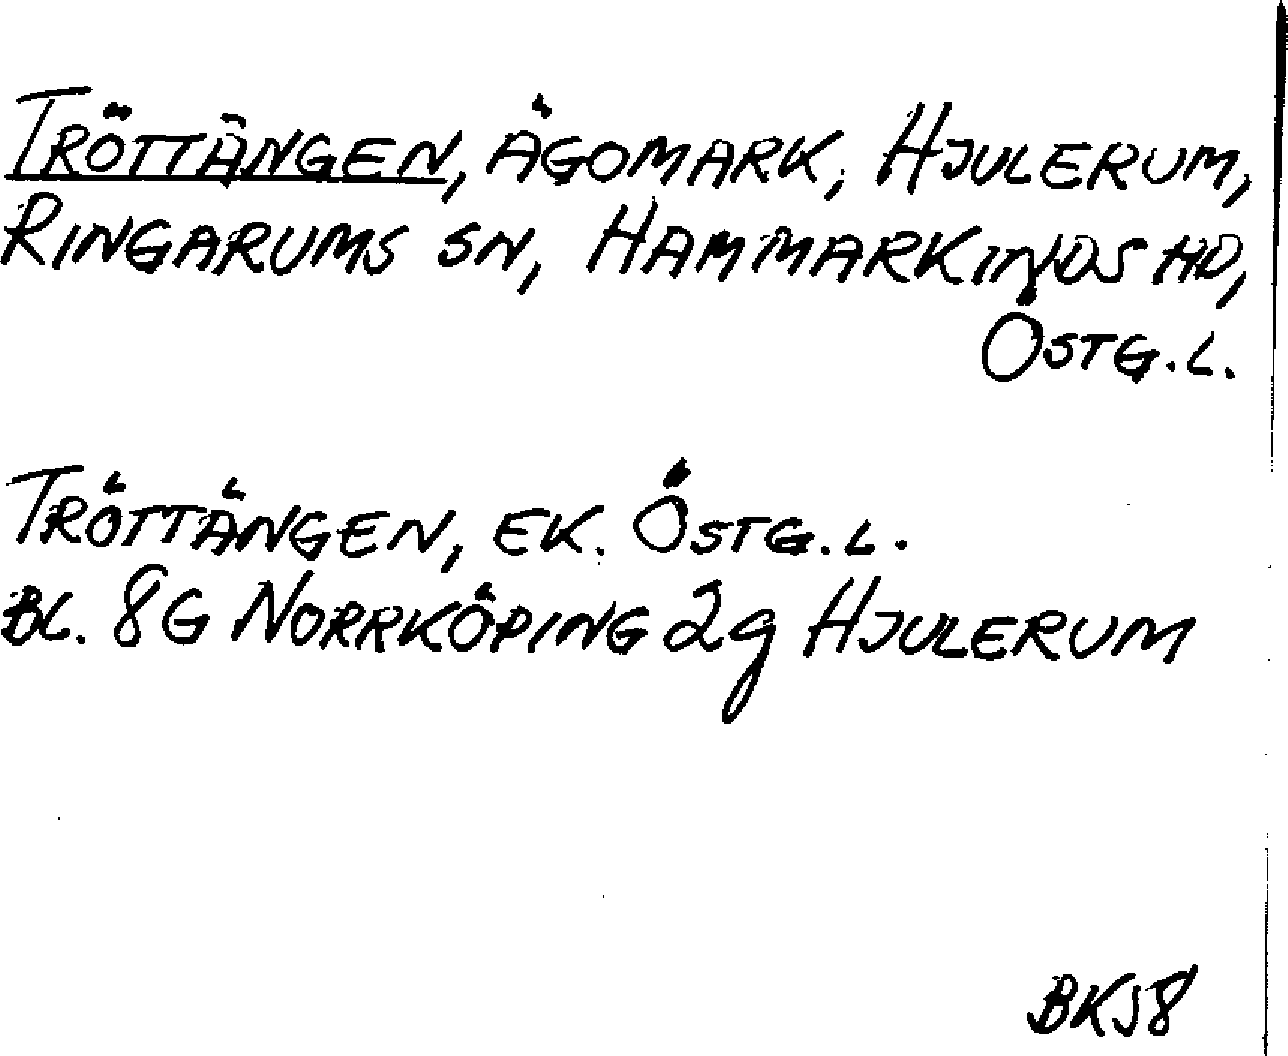 TRÖTTÄNGEN, ÄGOMARK, HJULERUM,
RINGARUMS SN, HAMMARKINDS HD,
ÖSTG.L.
TRÖTTÄNGEN, EK. ÖSTG.L.
BL. 8G NORRKÖPING 2g HJULERUM
BKJ8